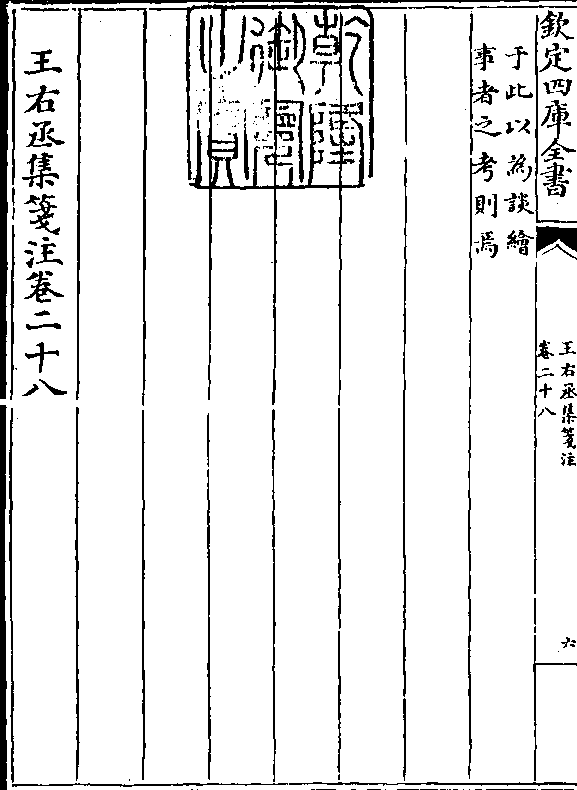 欽定四庫全書
王右丞集箋注
卷二十八
六
于此以爲談繪
事者之考則焉
乾隆御覽之寶
王右丞集箋注卷二十八